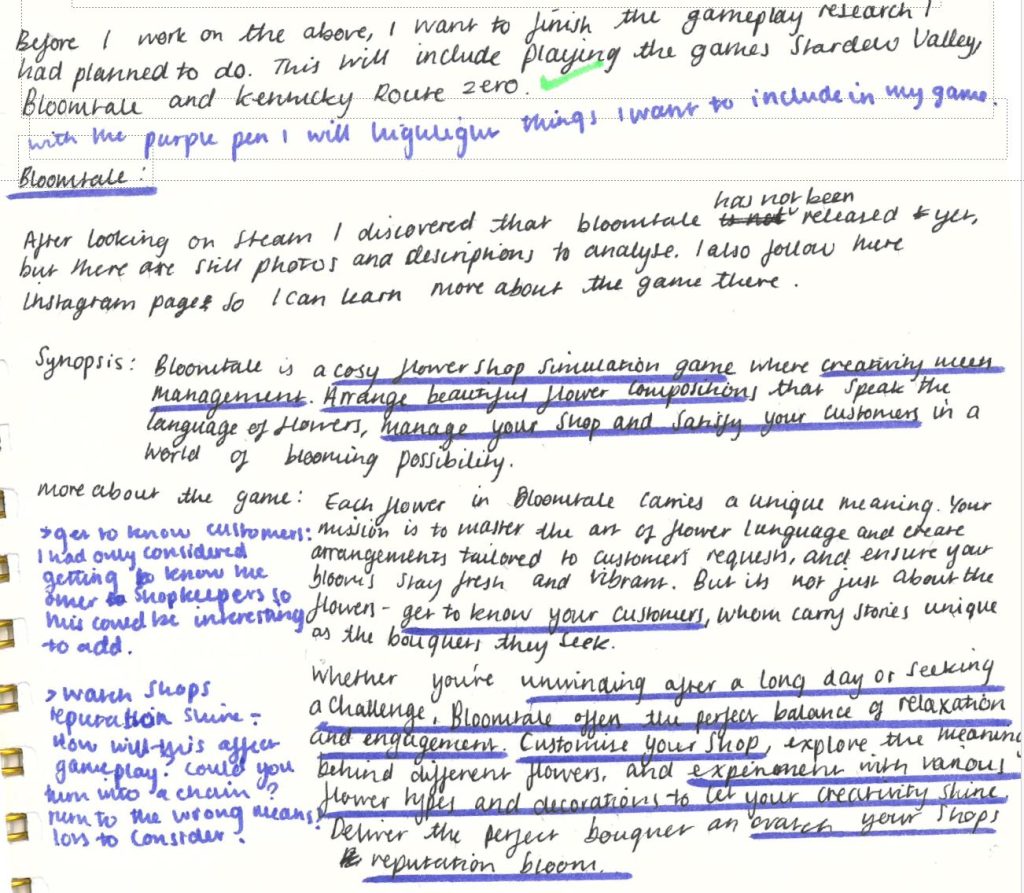 Before I work on the above, I want to finish the gameplay research I
had planned to do. This will include playing the games Stardew Valley,
Bloomtale and Kentucky Route Zero.
with the purple pen I will highlight things I want to include in my game.
Bloomtale:
has not been
After looking on Steam I discovered that bloomtale is not released yet,
but there are still photos and descriptions to analyse. I also follow there
instagram page, so I can learn more about the game there.
Synopsis: Bloomtale is a cosy flower shop simulation game where creativity meets
management. Arrange beautiful flower compositions that speak the
language of flowers, manage your shop and satisfy your customers in a
world of blooming possibility.
more about the game: Each flower in Bloomtale carries a unique meaning. Your
mission is to master the art of flower language and create
arrangements tailored to customers requests, and ensure your
bloom's stay fresh and vibrant. But its not just about the
flowers - get to know your customers, whom carry stories unique
as the bouquets they seek.
> get to know customers:
I had only considered
getting to know the
other shopkeepers so
this could be interesting
to add.
Whether you're unwinding after a long day or seeking
a challenge, Bloomtale offers the perfect balance of relaxation
and engagement. Customise your shop, explore the meaning
behind different flowers, and experiment with various
flower types and decorations to let your creativity shine.
Deliver the perfect bouquet an watch your shops
reputation bloom.
> watch shops
reputation shine -
How will this affect
gameplay? Could you
turn into a chain?
turn to the wrong means?
lots to consider!